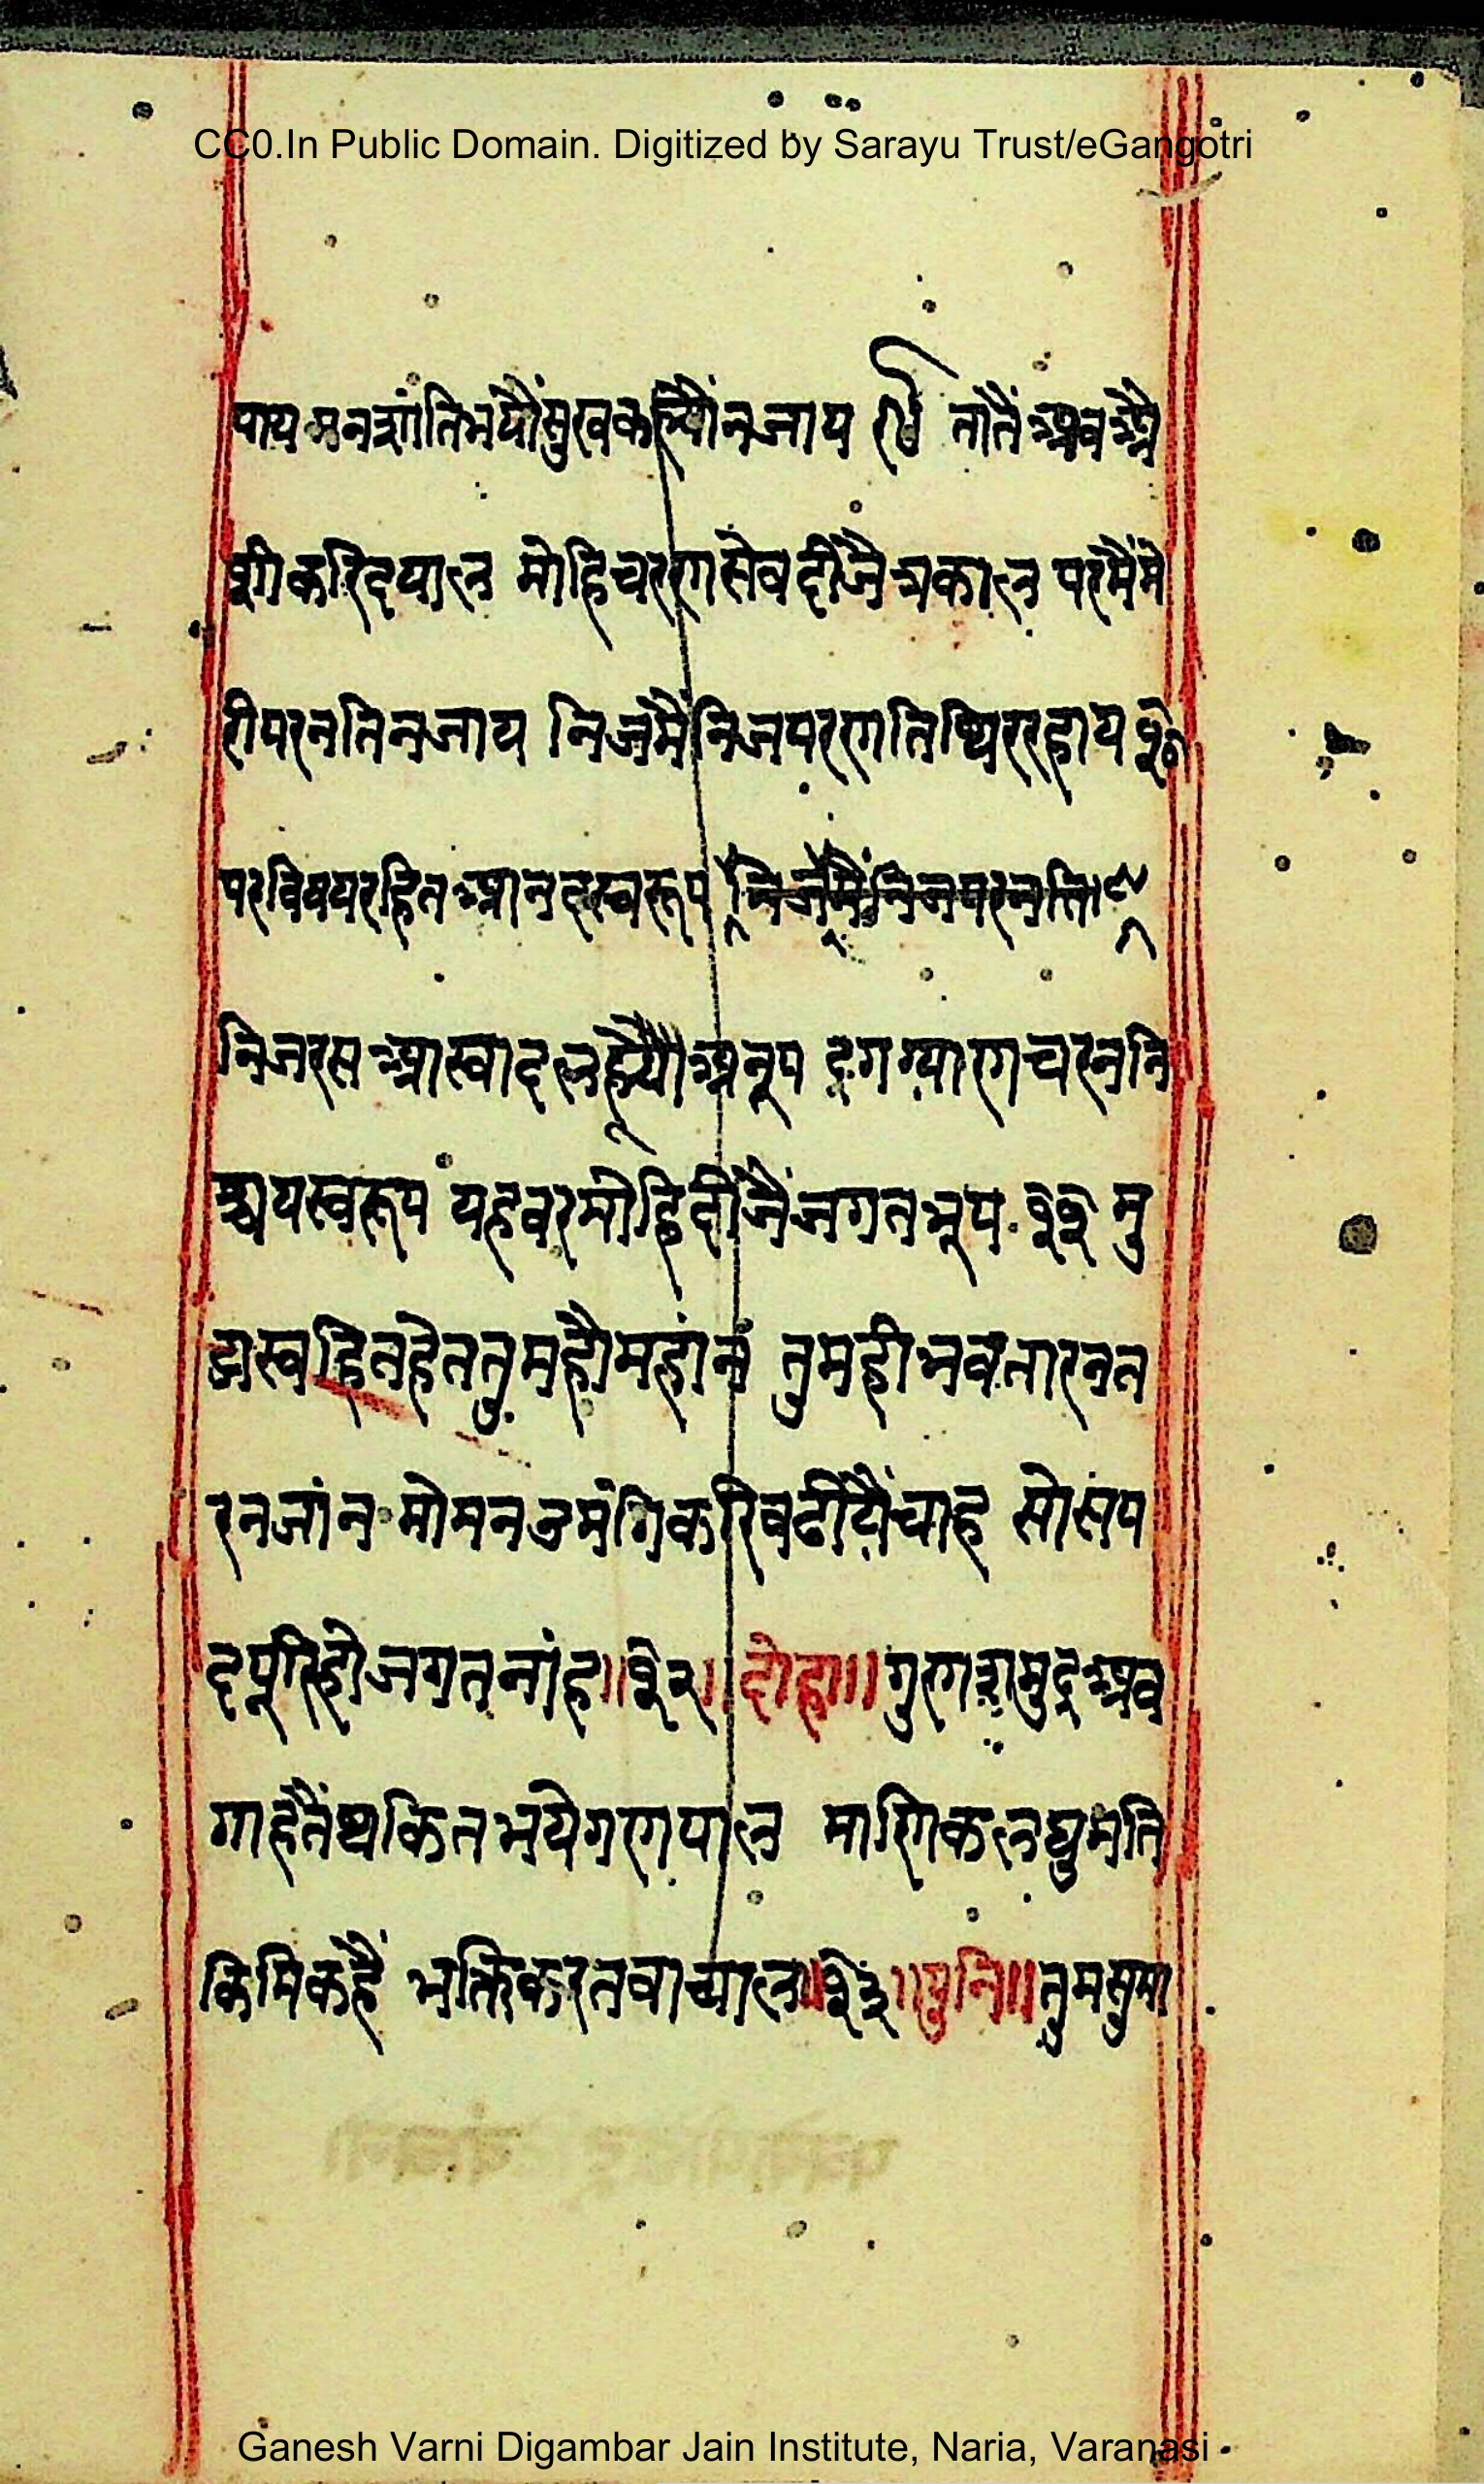 CC0.In Public Domain. Digitized by Sarayu Trust/eGangotri
पाय मनशांतिभयौंसुखकह्यौंनजाय २९ तातैं अब अै
शीकरिदयाल मोहिचरणसेवदीजैत्रकाल परमैंमे
रीपरनतिनजाय निजमैंनिजपरणतिथिररहाय ३०
परविषयरहितआनदस्वरूप निजमैंनिजपरनति
निजरसआस्वादलह्यौअनूप दृगग्यारणचरननि
श्चयस्वरूप यहवरमोहिदीजैंजगतभूप ३१ मु
झस्वहितहेततुमहौमहांन तुमहीभवतारनत
रनजांन मोमनउमंगिकरिबढीयैंचाह सोसंप
दपूरिहोजगतनांह॥३२॥ दोहा॥ गुणशमुद्रअव
गाहेतैंथकितभयेगणपाल माणिकलघुमति
किमिकहैं भक्तिकरतवाचाल॥३३॥पुनि॥तुमसुमा
Ganesh Varni Digambar Jain Institute, Naria, Varanasi